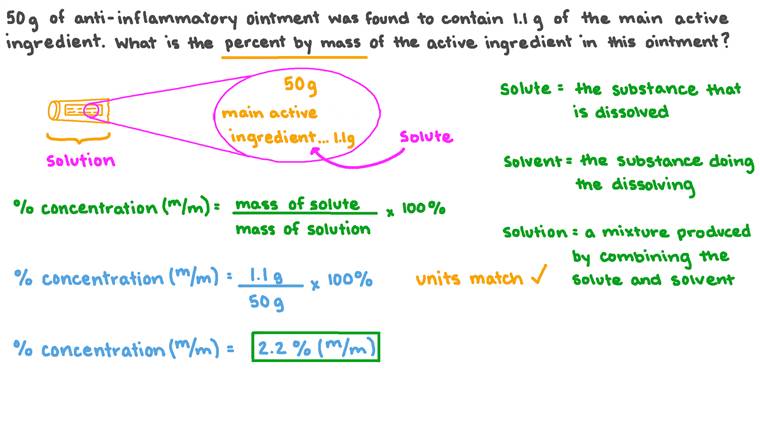 50g of anti-inflammatory ointment was found to contain 1.1 g of the main active
ingredient. What is the percent by mass of the active ingredient in this ointment?
50g
main active
ingredient... 1.1g
solute
solution
solute = the substance that
is dissolved
solvent = the substance doing
the dissolving
solution = a mixture produced
by combining the
solute and solvent
% concentration (m/m) = mass of solute / mass of solution × 100%
% concentration (m/m) = 1.1 g / 50 g × 100%
units match ✓
% concentration (m/m) = 2.2 % (m/m)